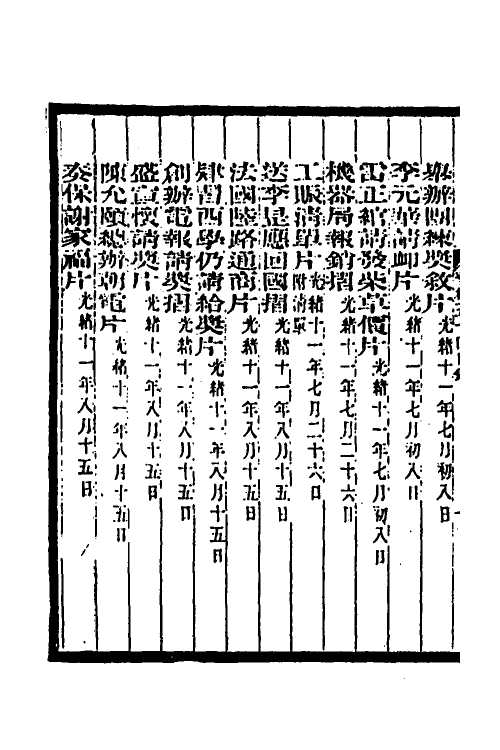 舉辦團練獎敘片光緒十一年七月初八日
李元華請卹片光緒十一年七月初八日
雷正綰請發柴草價片光緒十一年七月初八日
機器局報銷摺光緒十一年七月二十六日
工賑清單片附清單光緒十一年七月二十六日
送李昰應回國摺光緒十一年八月十五日
法國陸路通商片光緒十一年八月十五日
肄習西學仍請給獎片光緒十一年八月十五日
創辦電報請獎摺光緒十一年八月十五日
盛宣懷請獎片光緒十一年八月十五日
陳允頤總辦朝電片光緒十一年八月十五日
奏保謝家福片光緒十一年八月十五日